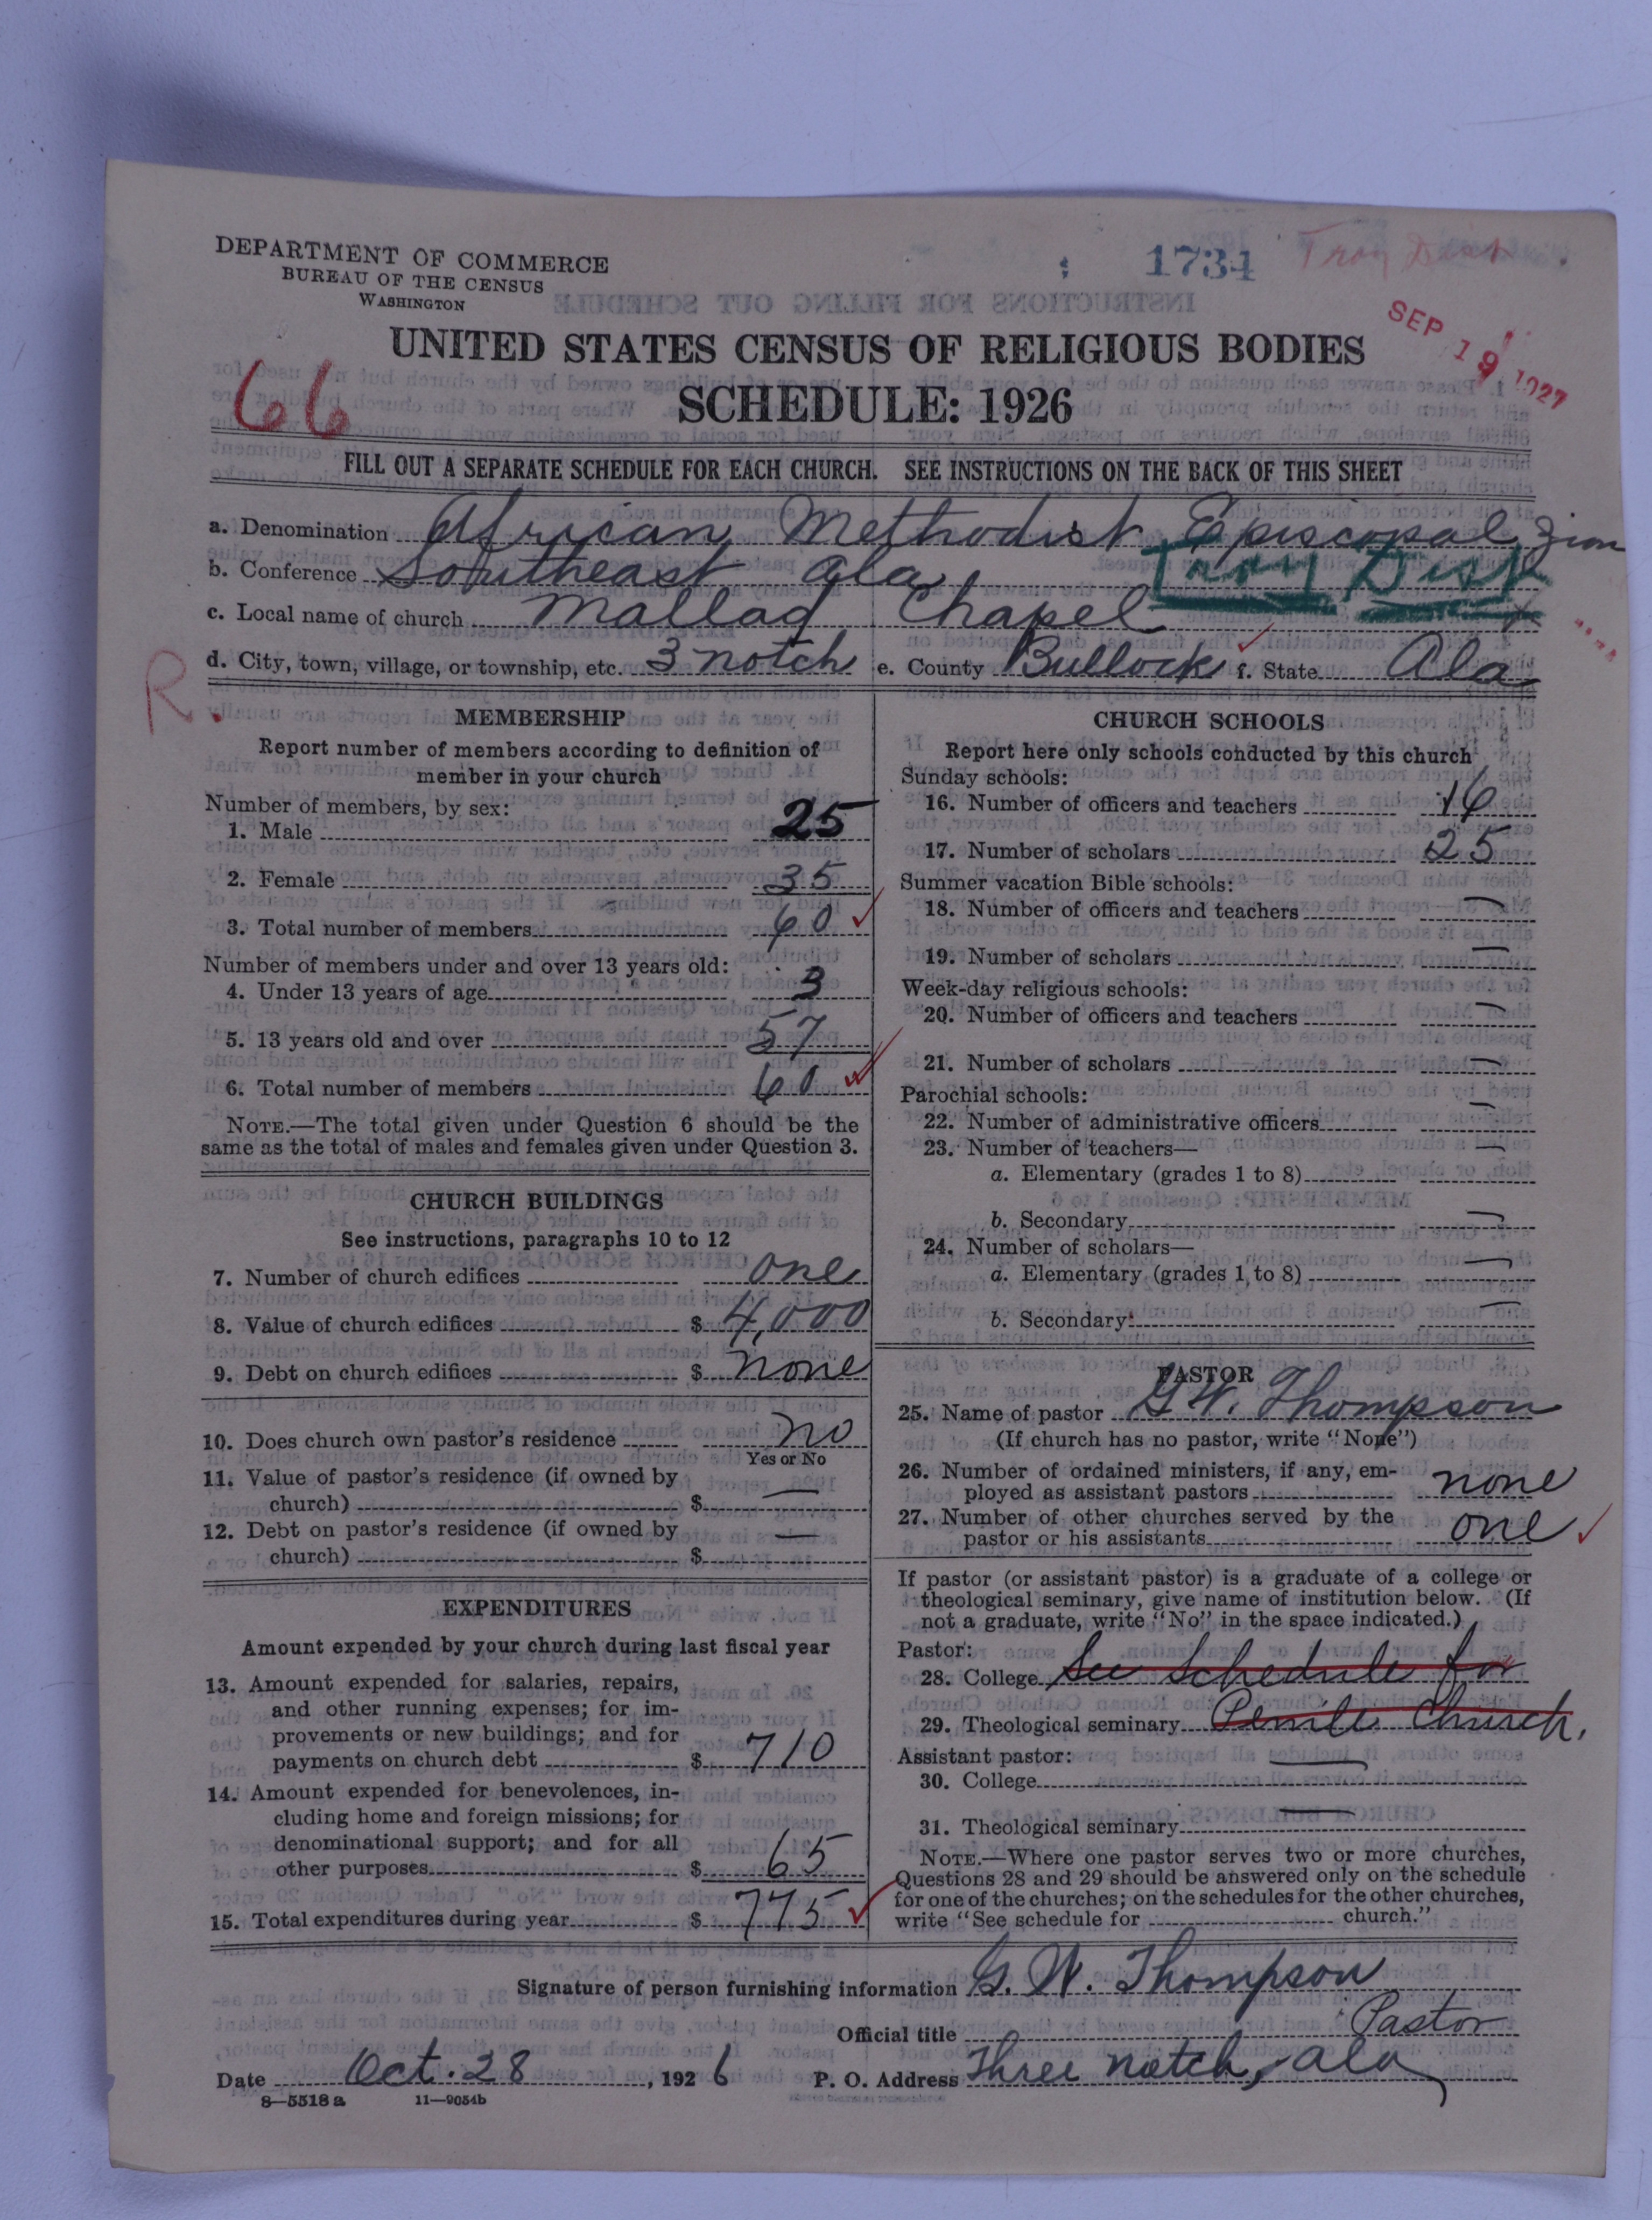 DEPARTMENT OF COMMERCE
BUREAU OF THE CENSUS
WASHINGTON
1734
Troy Dist
SEP 19 1927
UNITED STATES CENSUS OF RELIGIOUS BODIES
66
SCHEDULE: 1926
FILL OUT A SEPARATE SCHEDULE FOR EACH CHURCH. SEE INSTRUCTIONS ON THE BACK OF THIS SHEET
a. Denomination African Methodist Episcopal Zion
b. Conference Southeast Ala. Troy Dist
c. Local name of church Mallad Chapel
d. City, town, village, or township, etc. 3 notch e. County Bullock f. State Ala
R.
MEMBERSHIP
Report number of members according to definition of
member in your church
Number of members, by sex:
1. Male 25
2. Female 35
3. Total number of members 60
Number of members under and over 13 years old:
4. Under 13 years of age 3
5. 13 years old and over 57
6. Total number of members 60
NOTE.—The total given under Question 6 should be the
same as the total of males and females given under Question 3.
CHURCH BUILDINGS
See instructions, paragraphs 10 to 12
7. Number of church edifices one
8. Value of church edifices $ 4,000
9. Debt on church edifices $ none
10. Does church own pastor's residence no
Yes or No
11. Value of pastor's residence (if owned by
church) $ —
12. Debt on pastor's residence (if owned by
church) $ —
EXPENDITURES
Amount expended by your church during last fiscal year
13. Amount expended for salaries, repairs,
and other running expenses; for im-
provements or new buildings; and for
payments on church debt $ 710
14. Amount expended for benevolences, in-
cluding home and foreign missions; for
denominational support; and for all
other purposes $ 65
15. Total expenditures during year $ 775
CHURCH SCHOOLS
Report here only schools conducted by this church
Sunday schools:
16. Number of officers and teachers 16
17. Number of scholars 25
Summer vacation Bible schools:
18. Number of officers and teachers —
19. Number of scholars —
Week-day religious schools:
20. Number of officers and teachers —
21. Number of scholars —
Parochial schools:
22. Number of administrative officers —
23. Number of teachers—
a. Elementary (grades 1 to 8) —
b. Secondary —
24. Number of scholars—
a. Elementary (grades 1 to 8) —
b. Secondary —
PASTOR
25. Name of pastor G. W. Thompson
(If church has no pastor, write "None")
26. Number of ordained ministers, if any, em-
ployed as assistant pastors none
27. Number of other churches served by the
pastor or his assistants one
If pastor (or assistant pastor) is a graduate of a college or
theological seminary, give name of institution below. (If
not a graduate, write "No" in the space indicated.)
Pastor:
28. College See Schedule for
29. Theological seminary Penile Church.
Assistant pastor:
30. College —
31. Theological seminary —
NOTE.—Where one pastor serves two or more churches,
Questions 28 and 29 should be answered only on the schedule
for one of the churches; on the schedules for the other churches,
write "See schedule for church."
Signature of person furnishing information G. W. Thompson
Official title Pastor
Date Oct. 28, 1926 P. O. Address Three notch, Ala
8—5518 a 11—9054b